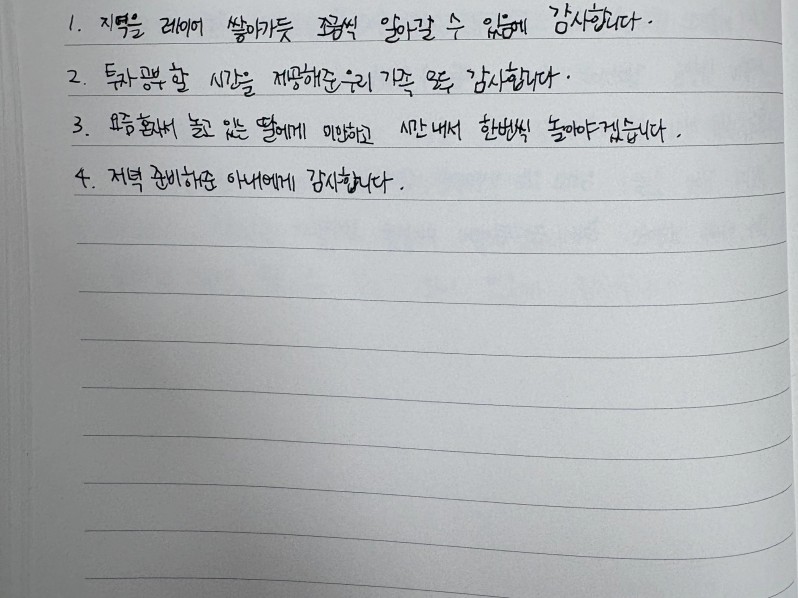 1. 지역을 레이어 쌓아가듯 조금씩 알아갈 수 있음에 감사합니다.
2. 투자공부 할 시간을 제공해준 우리 가족 모두 감사합니다.
3. 요즘 혼자서 놀고 있는 딸에게 미안하고 시간내서 한번씩 놀아야겠습니다.
4. 저녁 준비해준 아내에게 감사합니다.